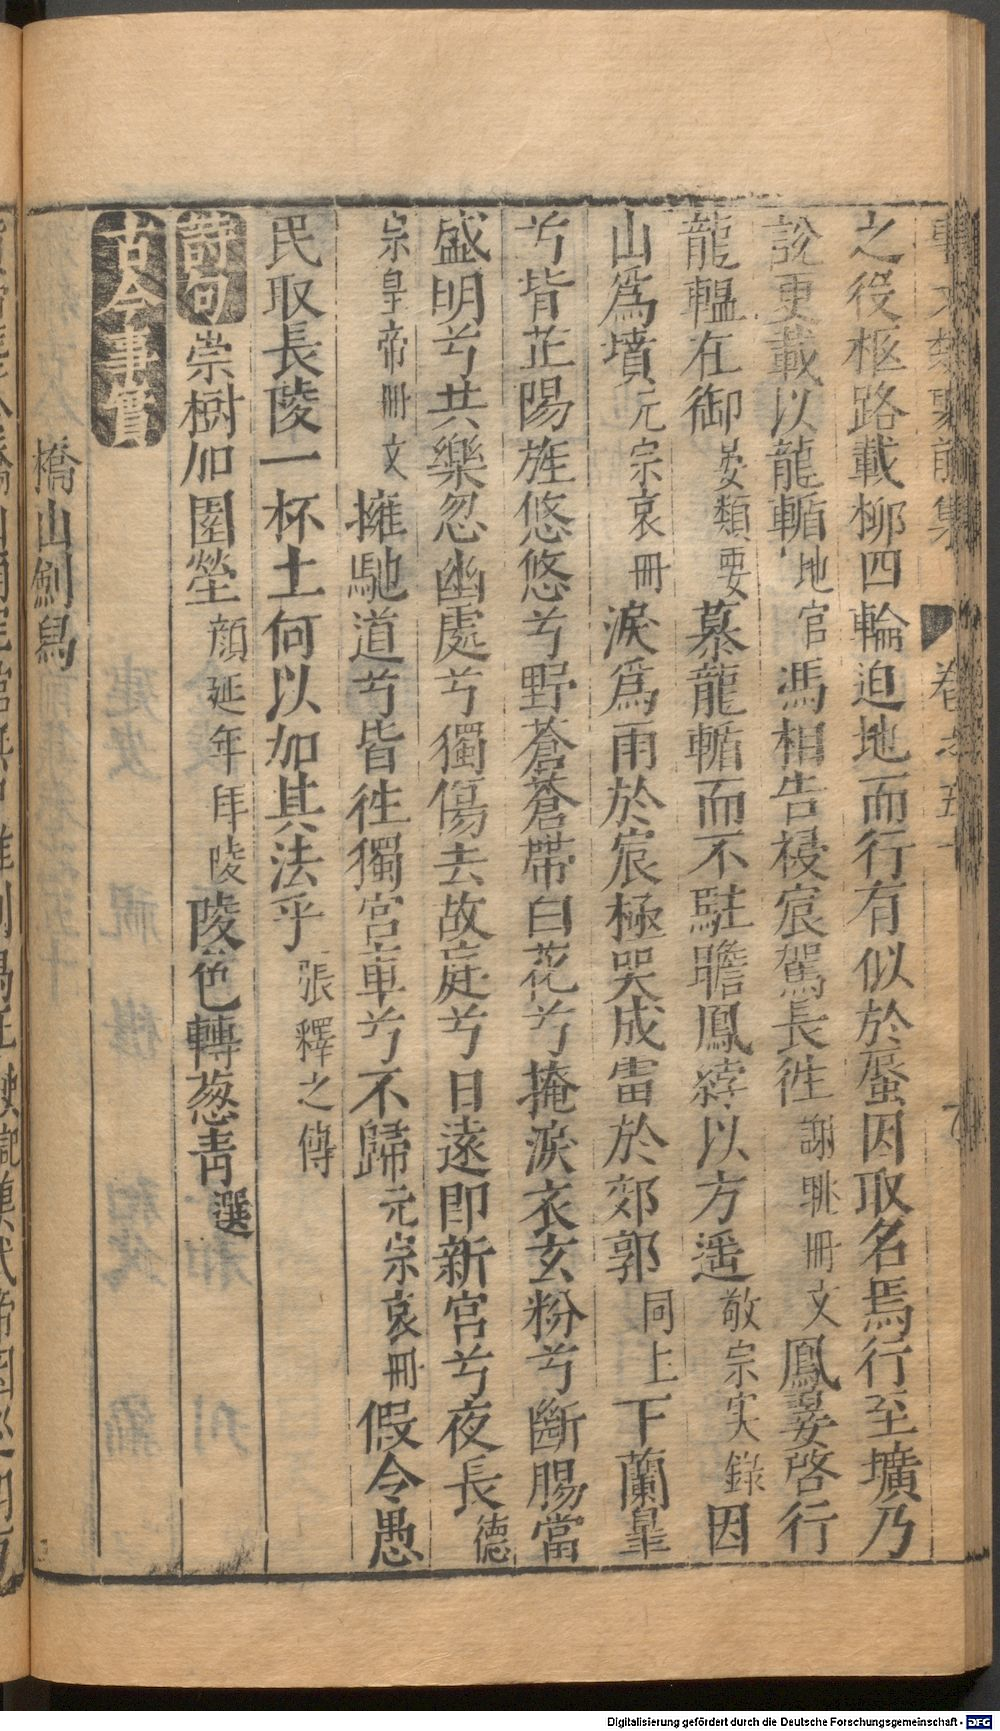 卷之五十
之役柩路載柳四輪迫地而行有似於蜃因取名焉行至壙乃
說更載以龍輴地官馮相告祲宸駕長往謝朓冊文鳳翣啓行
龍轀在御晏類要慕龍輴而不駐瞻鳳綍以方遥敬宗实錄因
山爲墳元宗哀冊淚爲雨於宸極哭成雷於郊郭同上下蘭皐
兮背芷陽旌悠悠兮野蒼蒼帶白花兮掩淚衣玄粉兮斷腸當
盛明兮共樂忽幽處兮獨傷去故庭兮日遠即新宮兮夜長德
宗皇帝冊文擁馳道兮皆徃獨宮車兮不歸元宗哀冊假令愚
民取長陵一杯土何以加其法乎張釋之傳
詩句崇樹加園塋顔延年拜陵陵色轉葱青選
古今事實
橋山劍舄
Digitalisierung gefördert durch die Deutsche Forschungsgemeinschaft - DFG